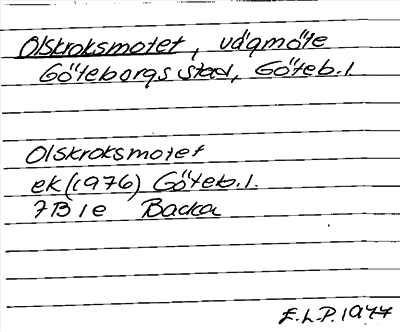 Olskroksmotet, vägmöte
Göteborgs stad, Göteb. l.
Olskroksmotet
ek (1976) Göteb. l.
7B 1e Backa
E.L.P. 1977